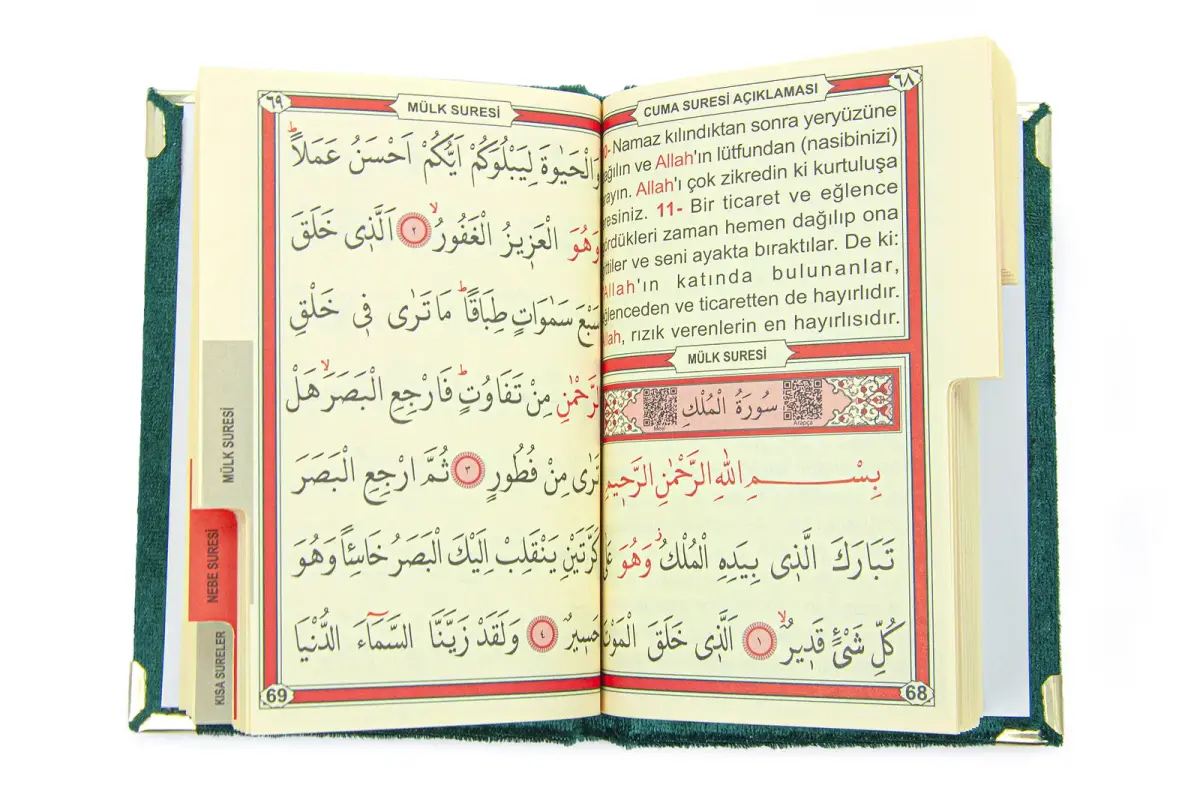 ٦٨
CUMA SURESİ AÇIKLAMASI
Namaz kılındıktan sonra yeryüzüne
ve Allah'ın lütfundan (nasibinizi)
Allah'ı çok zikredin ki kurtuluşa
11- Bir ticaret ve eğlence
zaman hemen dağılıp ona
ve seni ayakta bıraktılar. De ki:
Allah'ın katında bulunanlar,
ve ticaretten de hayırlıdır.
rızık verenlerin en hayırlısıdır.
MÜLK SURESİ
سُورَةُ الْمُلْكِ
Meal
Arapça
بِسْمِ اللهِ الرَّحْمٰنِ الرَّحِيمِ
تَبَارَكَ الَّذ۪ى بِيَدِهِ الْمُلْكُۘ وَهُوَ
كُلِّ شَىْءٍ قَد۪يرٌۙ ١ اَلَّذ۪ى خَلَقَ
68
٦٩
MÜLK SURESİ
وَالْحَيٰوةَ لِيَبْلُوَكُمْ اَيُّكُمْ اَحْسَنُ عَمَلًاۜ
وَهُوَ الْعَز۪يزُ الْغَفُورُۙ ٢ اَلَّذ۪ى خَلَقَ
سَبْعَ سَمٰوَاتٍ طِبَاقًاۜ مَا تَرٰى ف۪ى خَلْقِ
الرَّحْمٰنِ مِنْ تَفَاوُتٍۜ فَارْجِعِ الْبَصَرَۙ هَلْ
تَرٰى مِنْ فُطُورٍ ٣ ثُمَّ ارْجِعِ الْبَصَرَ
كَرَّتَيْنِ يَنْقَلِبْ اِلَيْكَ الْبَصَرُ خَاسِئًا وَهُوَ
حَس۪يرٌ ٤ وَلَقَدْ زَيَّنَّا السَّمَٓاءَ الدُّنْيَا
69
MÜLK SURESİ
NEBE SURESİ
KISA SURELER